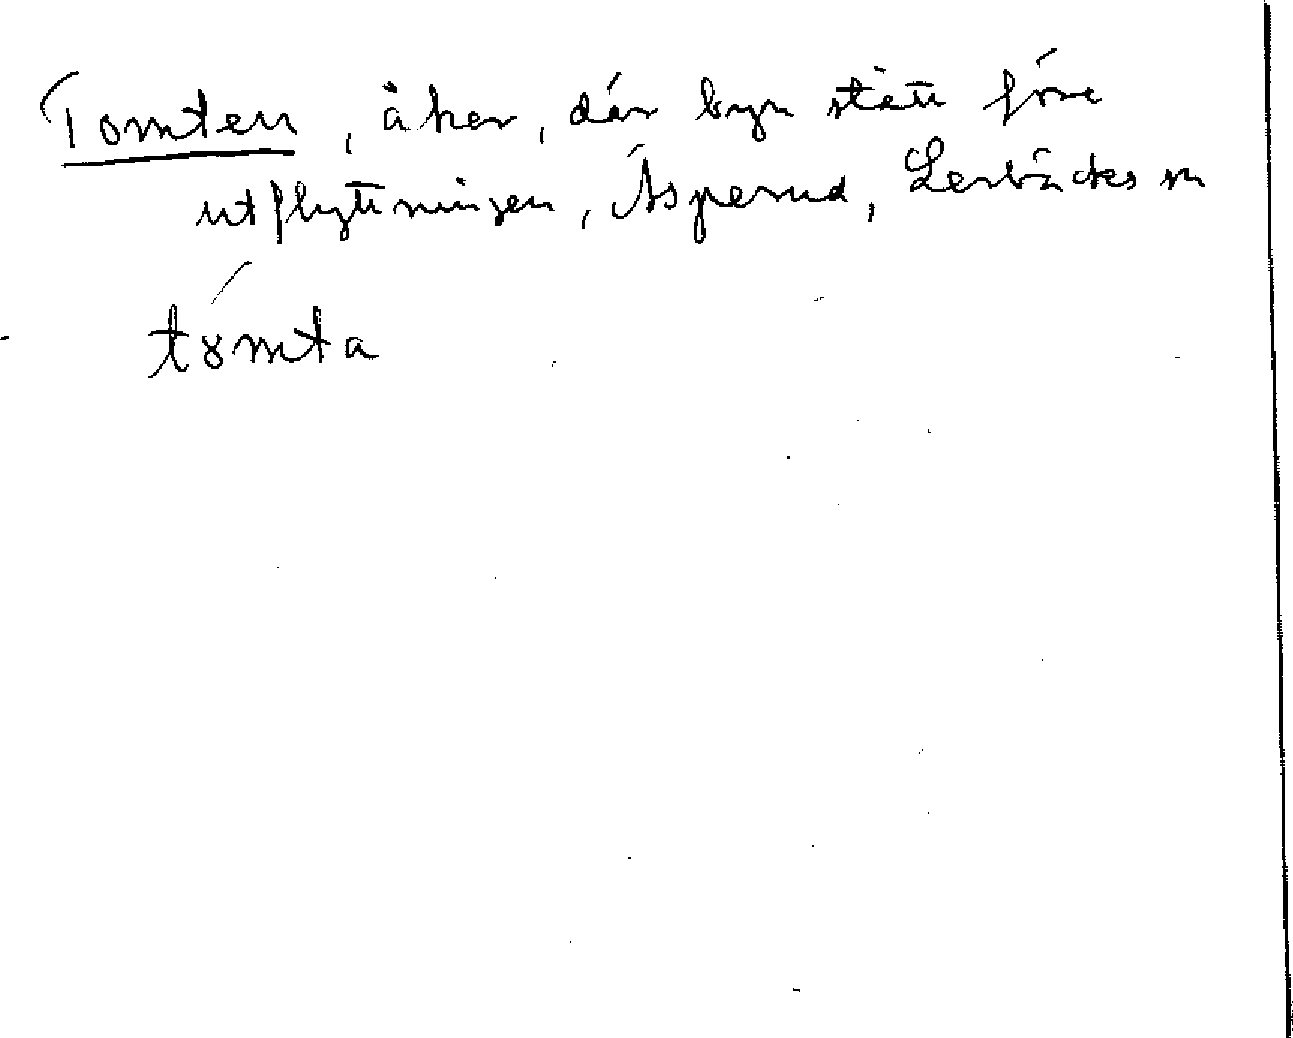 Tomten, åker, där byn stått före
utflyttningen, Åsperud, Lerbäcks sn
tȣmta